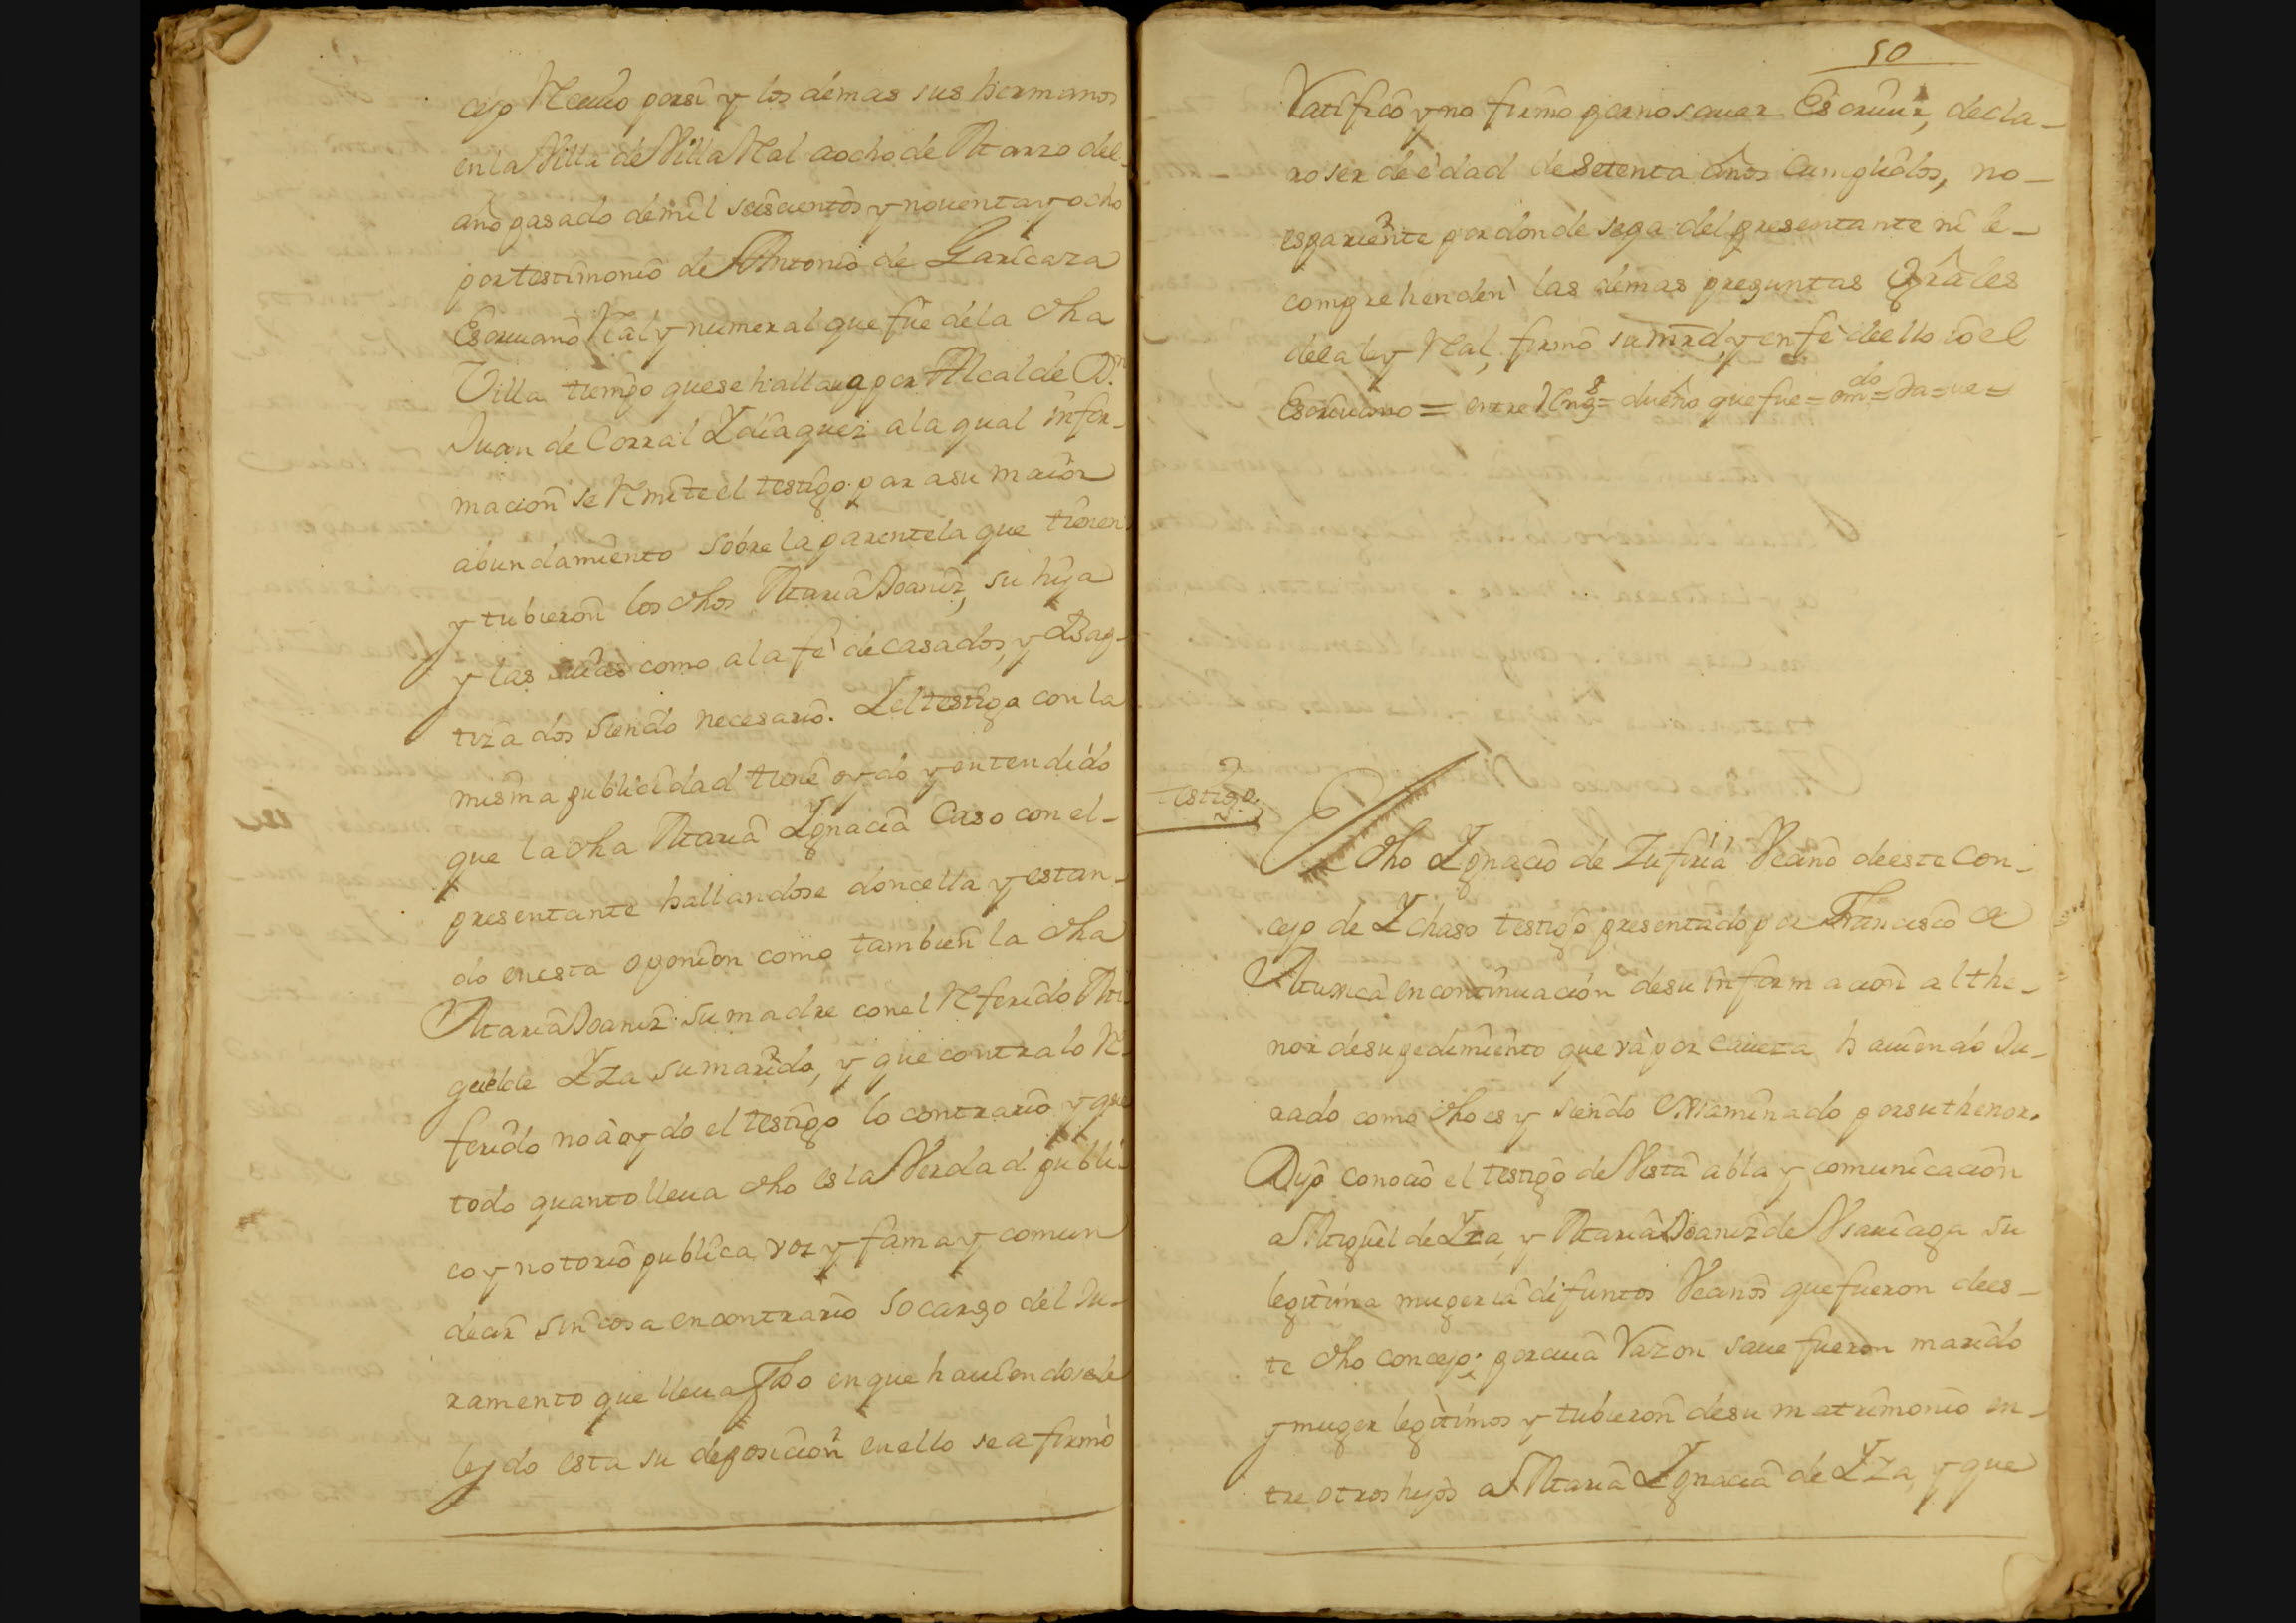 cejo Reciuio porsi y los demas sus hermanos
en la Villa de Villa Real a ocho de Marzo del
año pasado de mil seiscientos y nouenta y ocho
por testimonio de Antonio de Garicaza
Escriuano Real y numeral que fue de la dha
Villa tiempo que se hallaua por Alcalde Dn
Juan de Corral Ydiaquez a la qual infor-
macion se Remite el testigo para su maior
abundamiento sobre la parentela que tienen
y tubieron los dhos Maria Joaniz, su hija
y las suias como a la fe de casados, y Bap-
tizados siendo necesario. Y el testigo con la
misma publicidad tiene oydo y entendido
que la dha Maria Ygnacia Caso con el-
presentante hallandose doncella y estan-
do en esta oponion como tambien la dha
Maria Joaniz su madre con el Referido Mi-
guel de Yza su marido, y que contra lo Re-
ferido no à oydo el testigo lo contrario y que
todo quanto lleua dho es la Verdad publi-
co y notorio publica voz y fama y comun
decir sin cosa en contrario so cargo del Ju-
ramento que lleua fho en que hauiendosele
leydo esta su deposicion en ello se afirmò
50
Ratificò y no firmo por no sauer Escriuir, decla-
ro ser de edad de Setenta años Cumplidos, no-
es pariente por donde sepa del presentante ni le-
comprehenden las demas preguntas Grâles
de la ley Real, firmò su mrd, y en fè de ello Yo el
Escriuano = entre Rengs = dueño que fue = do = Ja = ue =
Testigo 2
Dho Ygnacio de Zufiria Vecino de este Con-
cejo de Ychaso testigo presentado por Francisco de
en continuacion de su informacion al the-
nor de su pedimiento que và por caueza hauiendo Ju-
rado como dho es y siendo Examinado por su thenor.
Dijo conocio el testigo de Vista abla y comunicacion
a Miguel de Yza y Maria Joaniz de Vsariaga su
legitima muger ia difuntos Vecinos que fueron de es-
te dho concejo; por cuia Razon saue fueron marido
y muger legitimos y tubieron de su matrimonio en-
tre otros hijos a Maria Ygnacia de Yza, y que